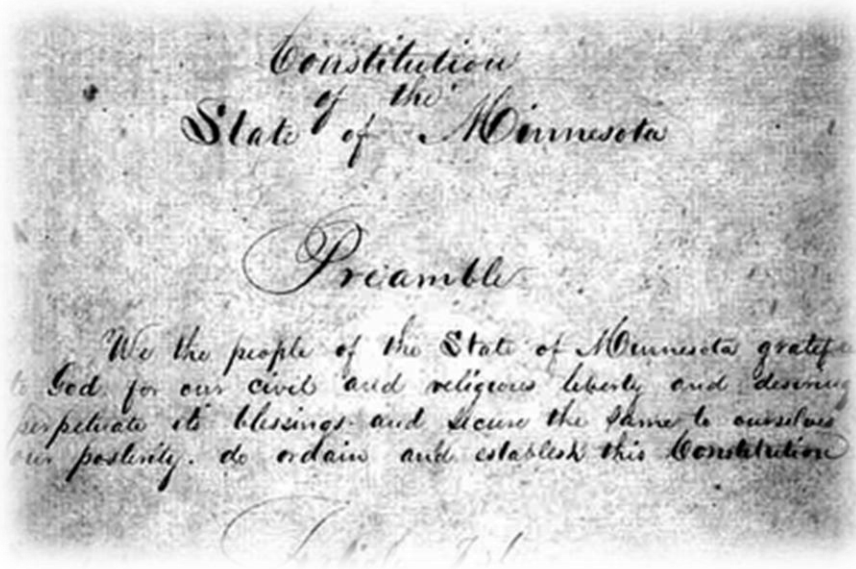 Constitution
of the
State of Minnesota
Preamble
We the people of the State of Minnesota grateful
to God for our civil and religious liberty and desiring
perpetuate its blessings and secure the same to ourselves
our posterity. do ordain and establish this Constitution